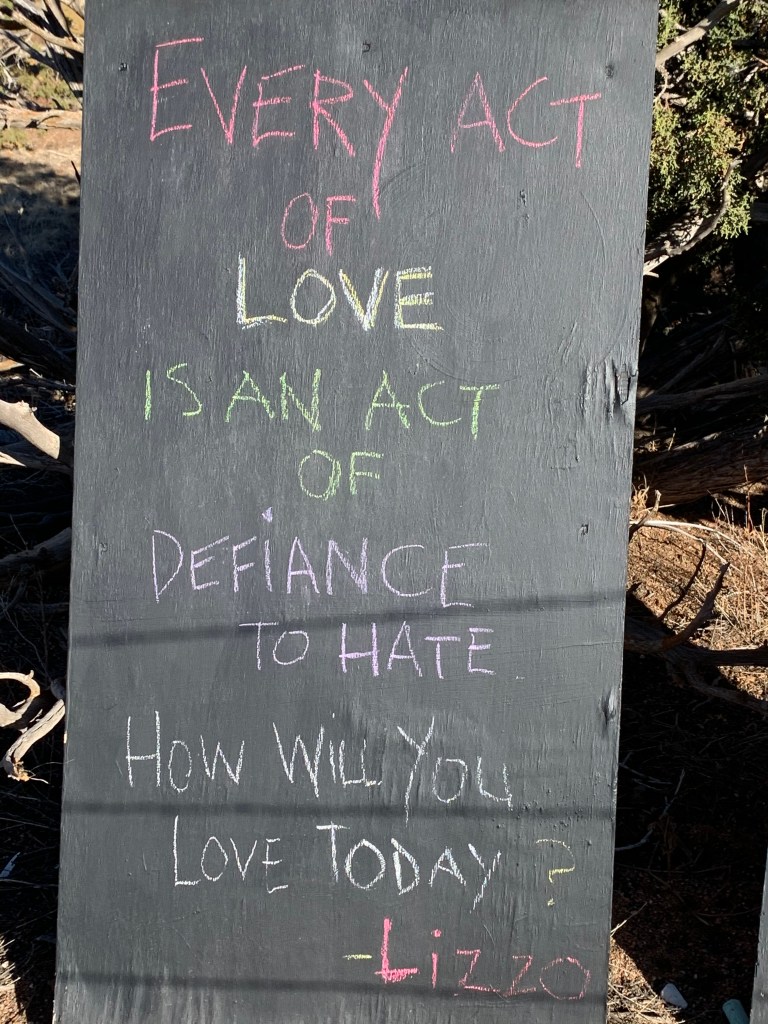 EVERY ACT
OF
LOVE
IS AN ACT
OF
DEFiANCE
TO HATE.
HOW WiLL YOU
LOVE TODAY?
-Lizzo